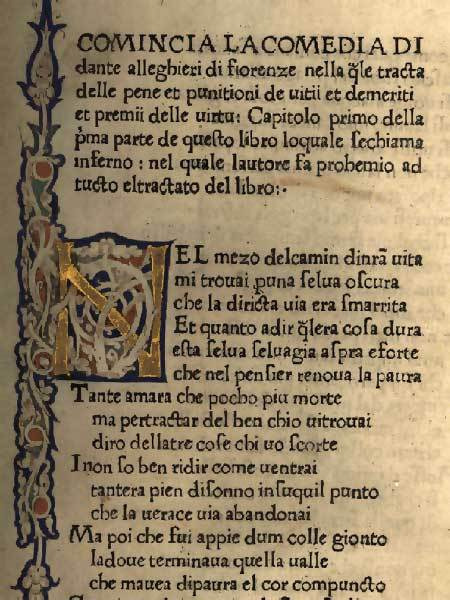 COMINCIA LACOMEDIA DI
dante alleghieri di fiorenze nella q̃le tracta
delle pene et punitioni de uitii et demeriti
et premii delle uirtu: Capitolo primo della
p̃ma parte de questo libro loquale sechiama
inferno: nel quale lautore fa prohemio ad
tucto eltractato del libro:·
NEL mezo delcamin dinr̃a uita
mi trouai p̱una selua oscura
che la diricta uia era smarrita
Et quanto adir q̃lera cosa dura
esta selua seluagia aspra eforte
che nel pensier renoua la paura
Tante amara che pocho piu morte
ma pertractar del ben chio uitrouai
diro dellatre cose chi uo scorte
Inon so ben ridir come uentrai
tantera pien disonno insuquil punto
che la uerace uia abandonai
Ma poi che fui appie dum colle gionto
ladoue terminaua quella ualle
che mauea dipaura el cor compuncto